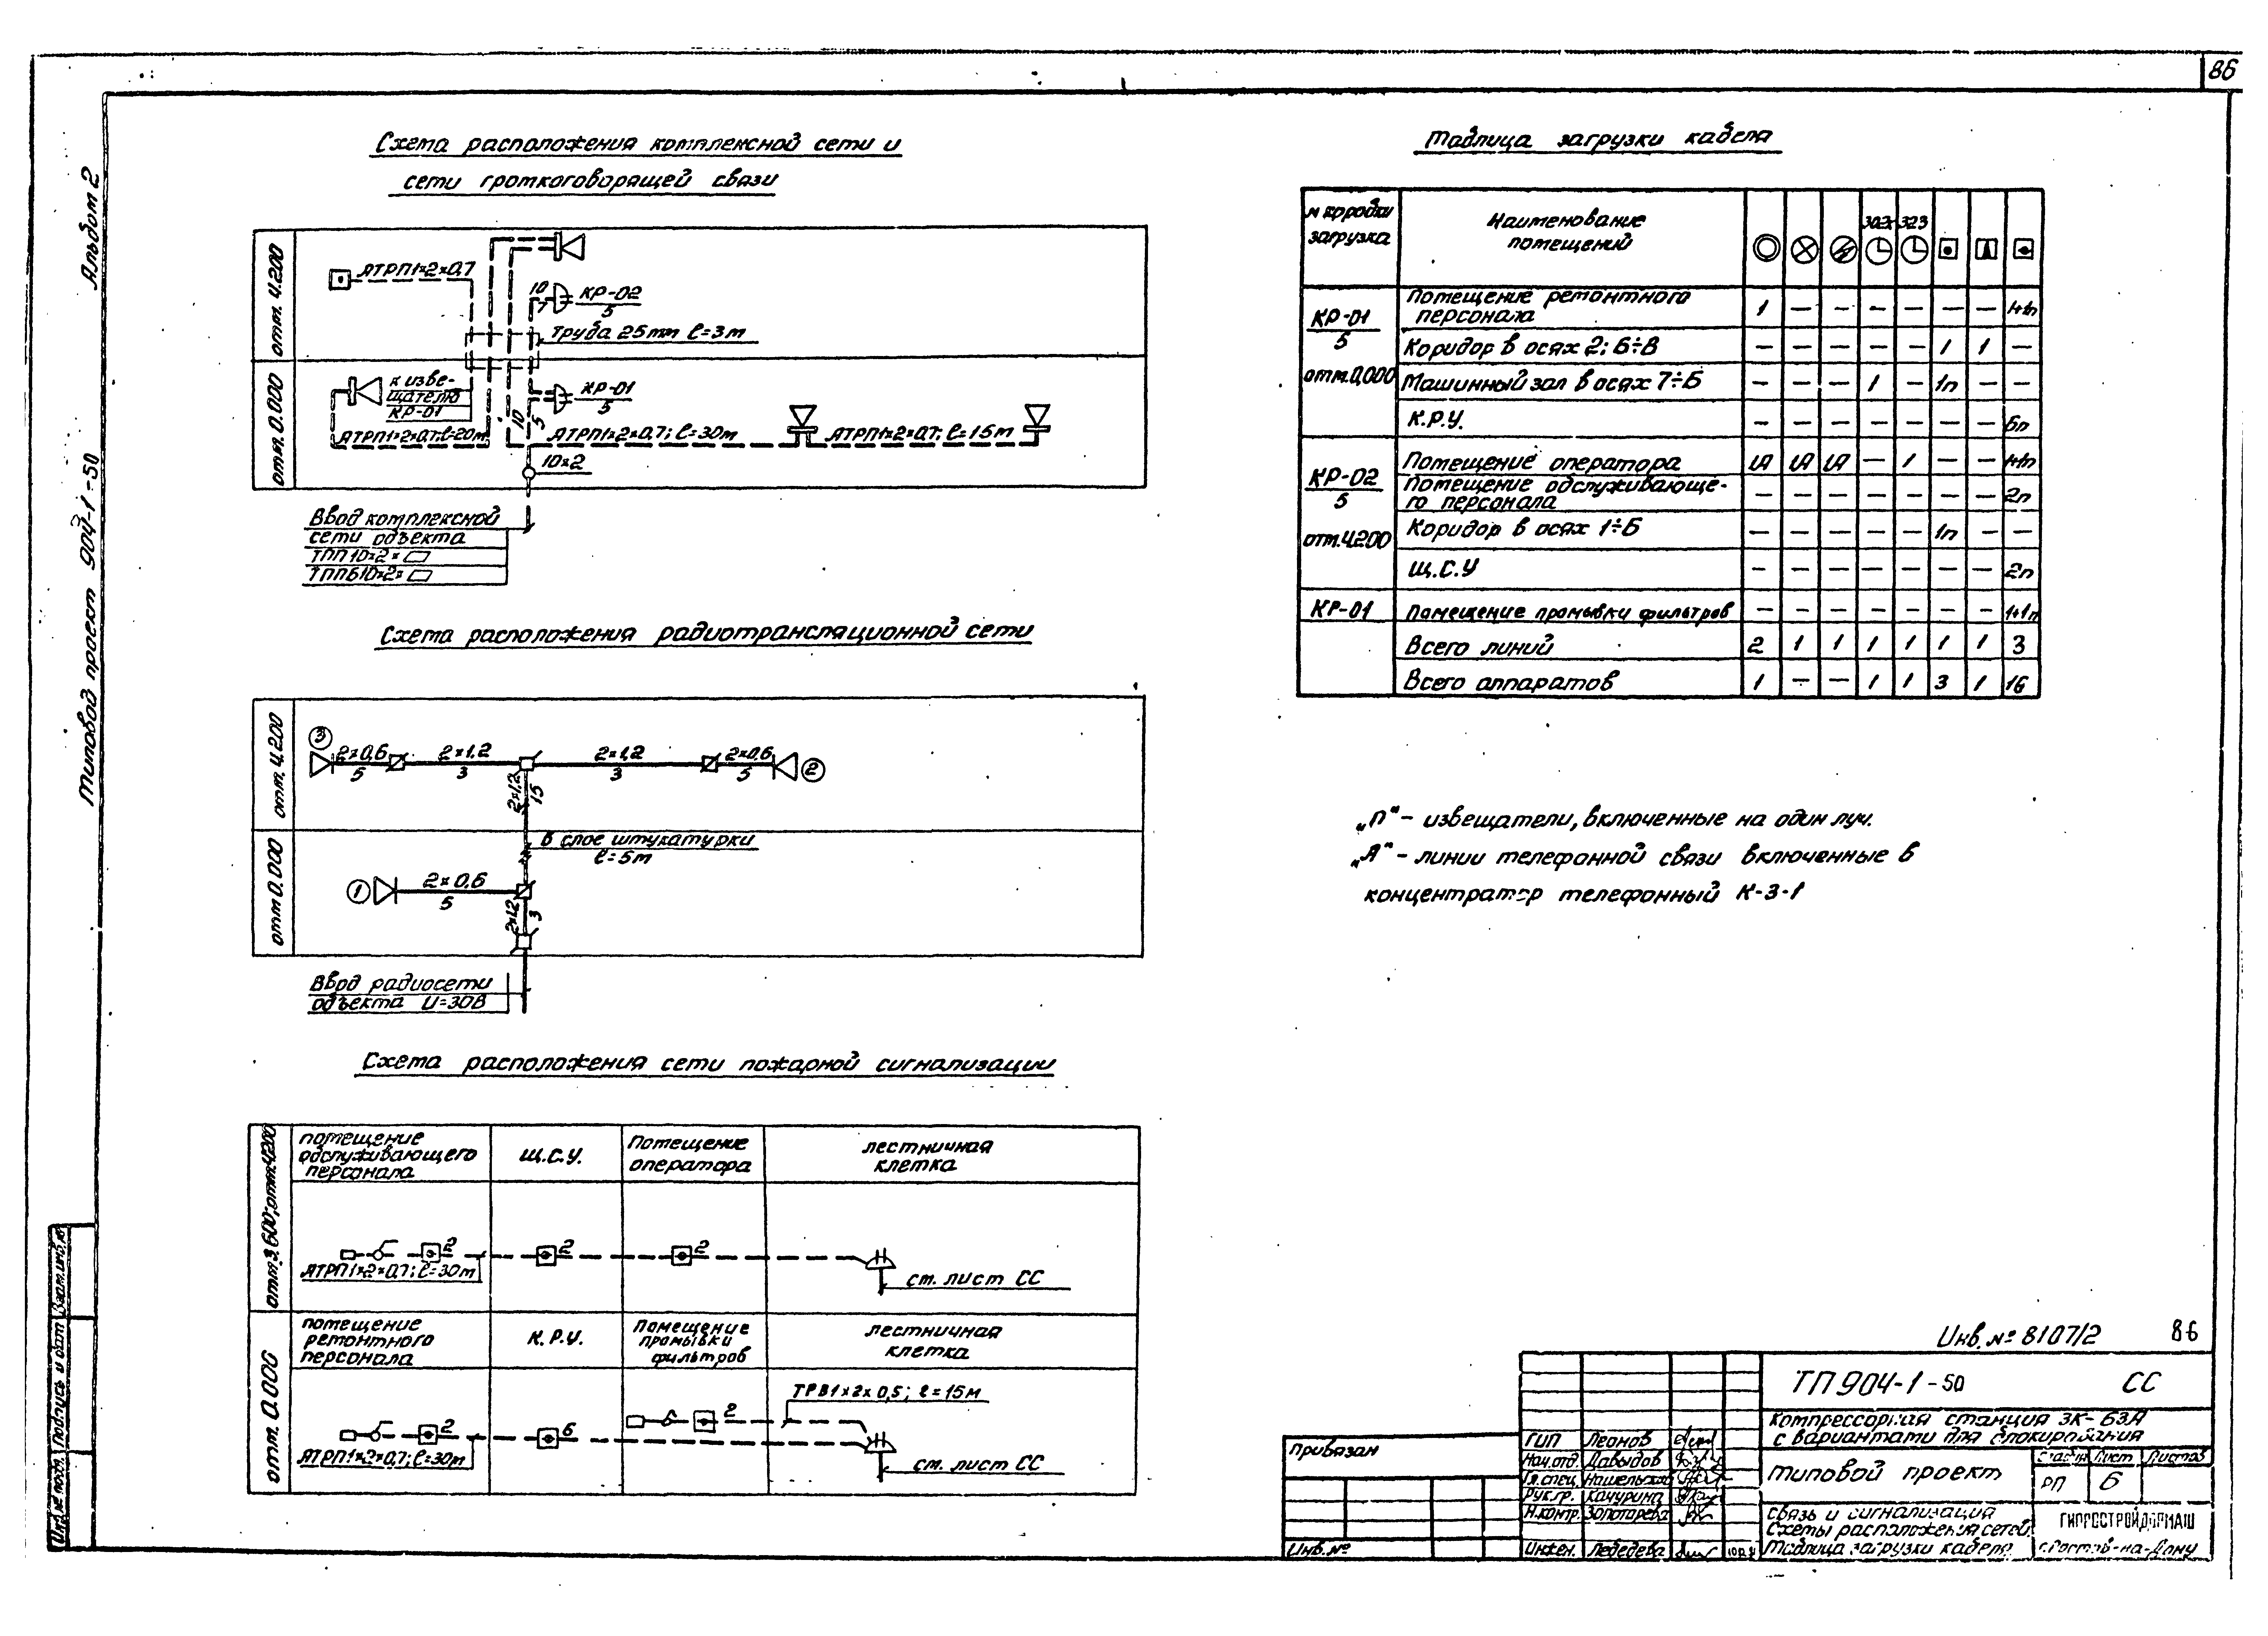 86
Альбом 2
Типовой проект 904-1-50
Схема расположения комплексной сети и
сети громкоговорящей связи
отм. 4.200
АТРП1×2×0.7
10
7
КР-02
5
Труба 25мм ℓ=3м
отм. 0.000
к изве-
щателю
КР-01
АТРП1×2×0.7; ℓ=20м
10
5
КР-01
5
АТРП1×2×0.7; ℓ=30м
АТРП1×2×0.7; ℓ=15м
10×2
Ввод комплексной
сети объекта
ТПП10×2×
ТППБ10×2×
Схема расположения радиотрансляционной сети
отм. 4.200
3
2×0,6
5
2×1,2
3
2×1,2
3
2×0,6
5
2
2×1,2
15
отм 0.000
в слое штукатурки
ℓ=5м
1
2×0,6
5
2×1,2
3
Ввод радиосети
объекта U=30В
Схема расположения сети пожарной сигнализации
отм.3.600; отм.4.200
помещение
обслуживающего
персонала
Щ.С.У.
Помещение
оператора
лестничная
клетка
2
2
2
АТРП1×2×0.7; ℓ=30м
см. лист СС
отм. 0.000
помещение
ремонтного
персонала
К.Р.У.
Помещение
промывки
фильтров
лестничная
клетка
ТРВ1×2×0,5; ℓ=15м
2
6
2
АТРП1×2×0.7; ℓ=30м
см. лист СС
Таблица загрузки кабеля
№ коробки
загрузка
Наименование
помещений
302
323
КР-01
5
отм.0,000
Помещение ремонтного
персонала
1 — — — — — — 1+1п
Коридор в осях 2; Б÷В
— — — — — 1 1 —
Машинный зал в осях 7÷Б
— — — 1 — 1п — —
К.Р.У.
— — — — — — — 6п
КР-02
5
отм.4.200
Помещение оператора
1А 1А 1А — 1 — — 1+1п
Помещение обслуживающе-
го персонала
— — — — — — — 2п
Коридор в осях 1÷Б
— — — — — 1п — —
Щ.С.У
— — — — — — — 2п
КР-01
Помещение промывки фильтров
— — — — — — — 1+1п
Всего линий
2 1 1 1 1 1 1 3
Всего аппаратов
1 — — 1 1 3 1 16
„П“ - извещатели, включенные на один луч.
„А“ - линии телефонной связи включенные в
концентратор телефонный К-3-1
Инв. № 8107/2 86
ТП 904-1-50 СС
Компрессорная станция 3К-63А
с вариантами для блокирования
Типовой проект
Стадия Лист Листов
РП 6
Связь и сигнализация
Схемы расположения сетей.
Таблица загрузки кабеля.
ГИПРОСТРОЙДОРМАШ
г.Ростов-на-Дону
ГИП Леонов
Нач.отд. Давыдов
Гл.спец.
Рук.гр. Качурина
Н.контр. Золотарева
Инжен. Лебедева
Привязан
Инв.№
Инв.№ подл.
Подпись и дата
Взам.инв.№